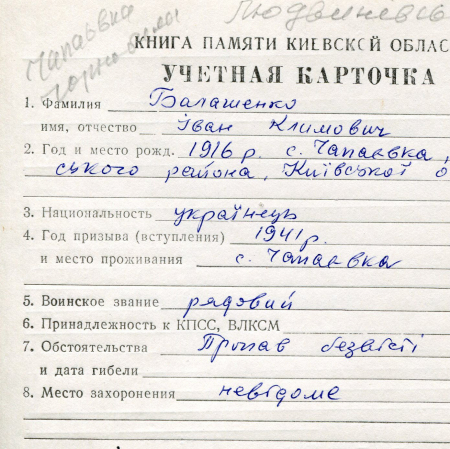 Чапаєвка
КНИГА ПАМЯТИ КИЕВСКОЙ ОБЛАС
УЧЕТНАЯ КАРТОЧКА
1. Фамилия Балашенко
имя, отчество Іван Климович
2. Год и место рожд. 1916 р. с. Чапаєвка,
ського района, Київської о
3. Национальность українець
4. Год призыва (вступления) 1941 р.
и место проживания с. Чапаєвка
5. Воинское звание рядовий
6. Принадлежность к КПСС, ВЛКСМ
7. Обстоятельства Пропав безвісті
и дата гибели
8. Место захоронения невідоме